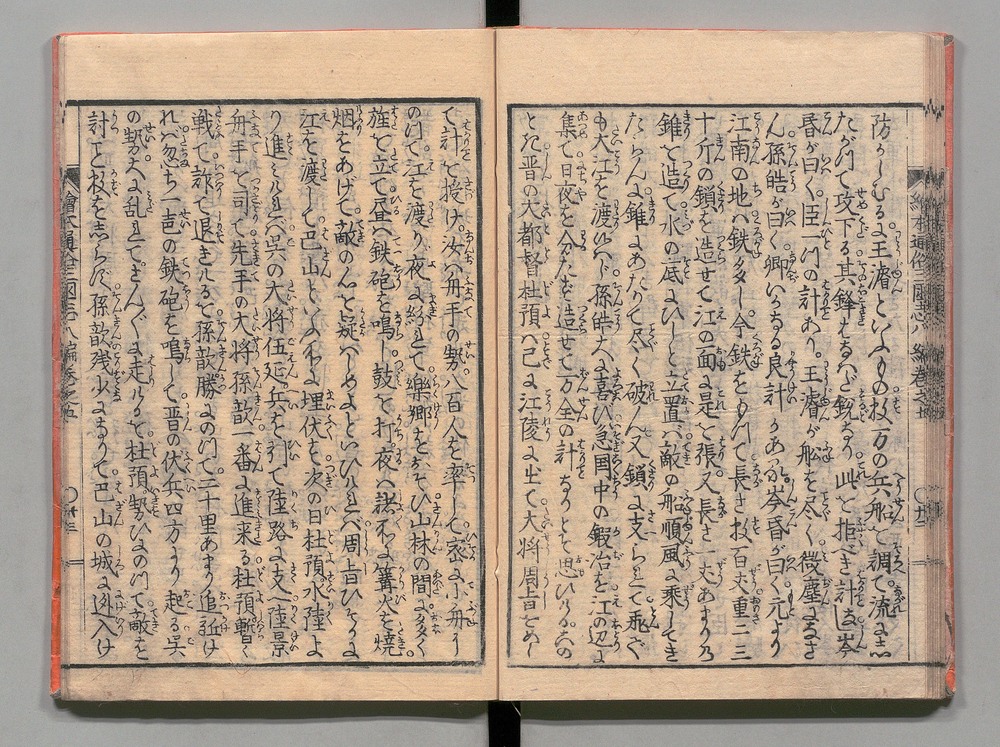 防がしむるに王濬といふもの数万の兵船を調て流にし
たがつて攻下る其鋒はなはだ鋭なり此を拒べき計は岑
昏が曰く臣一門の計あり王濬が船を尽く微塵になさ
ん孫皓が曰く卿いかなる良計かある岑昏が曰く元より
江南の地ハ鉄多し今鉄をもつて長さ数百丈重二三
十斤の鎖を造せて江の面に是を張又長さ一丈あまりの
錐を造て水の底にひしと立置バ敵の船順風に乗してき
たらん時錐にあたりて尽く破ん又鎖に支られて乖ぐ
も大江を渡ルべし孫皓大に喜び急ぎ国中の鍛冶を江の辺に
集て日夜を分たず造せて万全の計なりとぞ思ひける去ほ
ときに晋の大都督杜預ハ已に江陵に出て大将周旨をめし
て計を授け汝ハ舟手の勢八百人を率して密に小舟に
のつて江を渡り夜に紛れて樂郷をおそひ山林の間に多く
旌を立て昼ハ鉄砲を鳴し鼓を打夜ハ諸所に篝火を焼
烟をあげて敵の心を疑ハしめよといひけれバ周旨ひそかに
江を渡して巴山といふ所に埋伏す次の日杜預水陸よ
り進ミけれバ呉の大将伍延兵を引て陸路に支へ陸景
舟手を司て先手の大将孫歆一番に進来る杜預暫く
戦て詐て退きけるを孫歆勝にのつて二十里あまり追近け
れバ忽ち一声の鉄砲を鳴して晋の伏兵四方より起る呉
の勢大に乱れてさんざんに走けるを杜預勢ひにのつて敵を
討こと数をしらず孫歆残少になつて巴山の城に逃入け
繪本通俗三國志八編巻之五
繪本通俗三國志八編巻之五